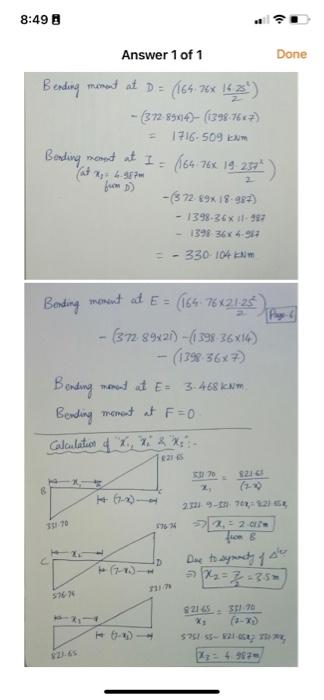 8:49
Answer 1 of 1
Done
Bending moment at D = (164.76 x 16.25²/2)
- (372.89x14) - (1398.76x7)
= 1716.509 kNm
Bending moment at I = (164.76x 19.237²/2)
(at x₃ = 4.987m from D)
- (372.89 x 18.987)
- 1398.36 x 11.987
- 1398.36 x 4.987
= - 330.104 kNm
Bending moment at E = (164.76 x 21.25²/2)
Page-6
- (372.89x21) - (1398.36x14)
- (1398.36x7)
Bending moment at E = 3.468 kNm
Bending moment at F = 0
Calculation of "x₁", "x₂" & "x₃":-
821.65
x₁
B
(7-x₁)
C
331.70
331.70/x₁ = 821.65/(7-x₁)
=> x₁ = 2.013m
from B
576.76
C
x₂
(7-x₂)
D
576.76
Due to symmetry of
=> x₂ = 7/2 = 3.5m
331.70
x₃
(7-x₃)
821.65
821.65/x₃ = 331.70/(7-x₃)
x₃ = 4.987m